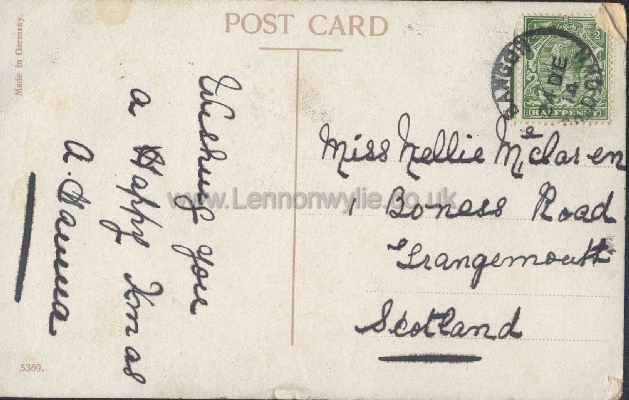 POST CARD
Made in Germany.
Wishing you
a Happy Xmas
A. Hanna
Miss Nellie McLaren
1 Boness Road
Grangemouth
Scotland
BANGOR
CO. DOWN
DE
A
HALFPENNY
www.Lennonwylie.co.uk
5369.